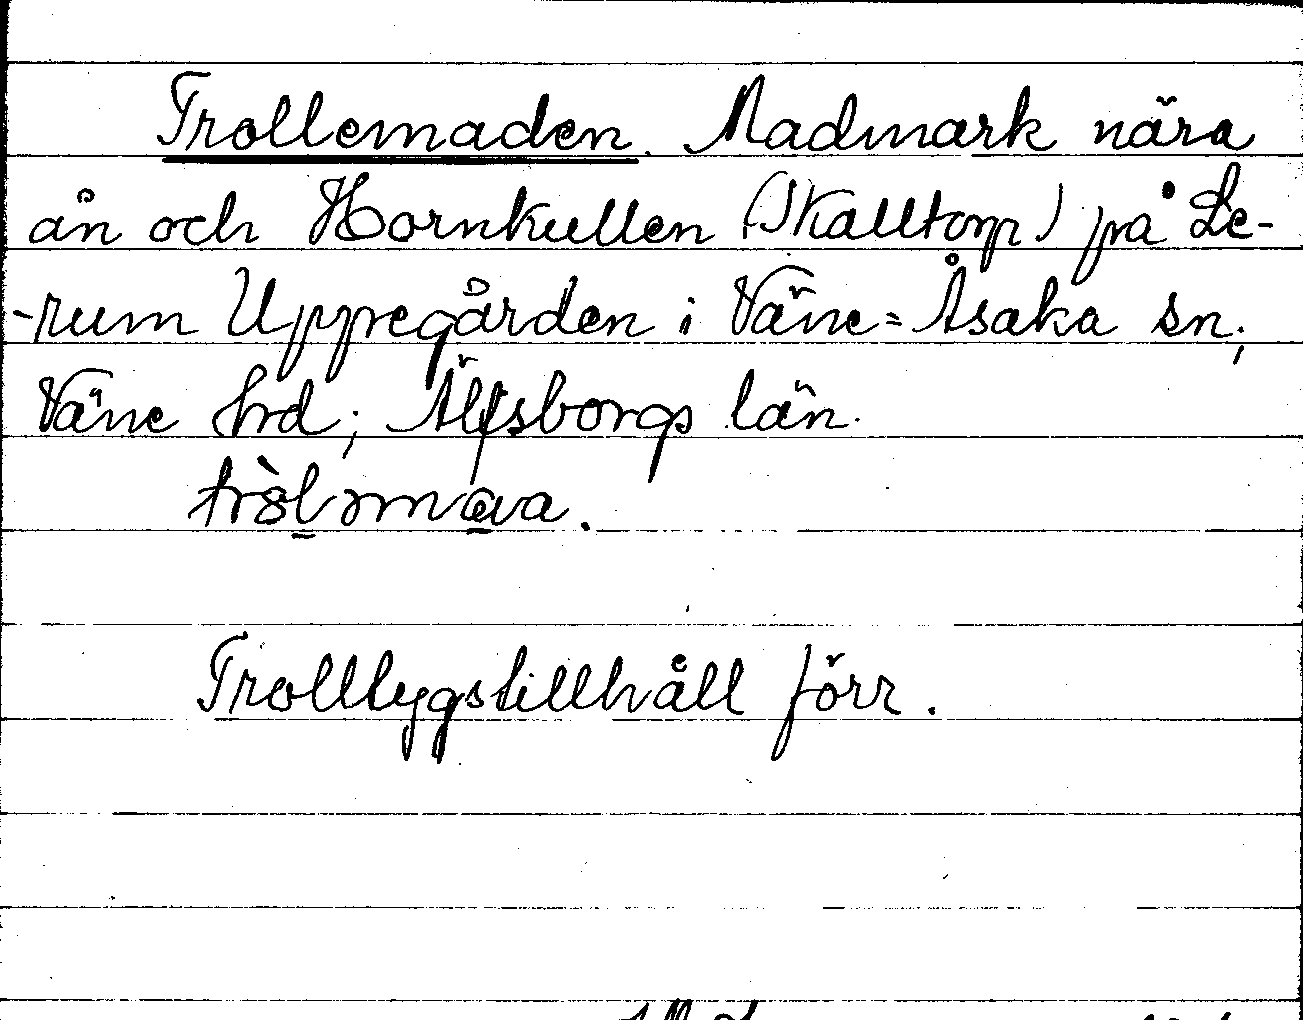 Trollemaden. Madmark nära
ån och Hornkullen (Skalltorp) på Le-
-rum Uppregården i Väne=Åsaka sn;
Väne hrd; Älfsborgs län.
Trolltygstillhåll förr.